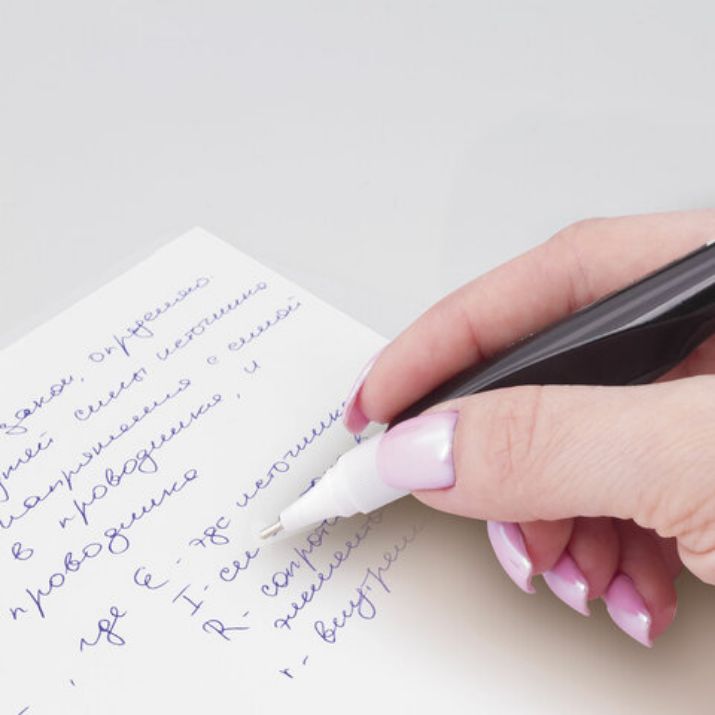 закон, определяю
силы источника
напряжения с силой
в проводнике, и
проводника
, где Ɛ - эдс источник
I - си
R - сопрот
r - внутрен